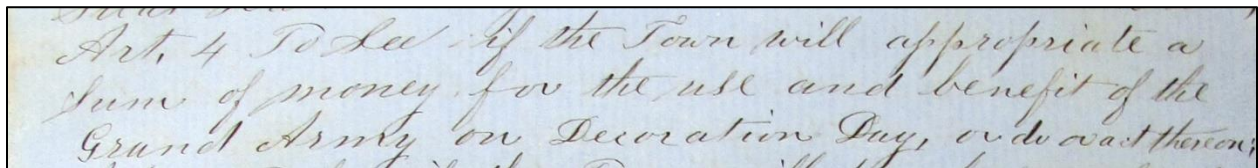 Art. 4 To See if the Town will appropriate a
Sum of money for the use and benefit of the
Grand Army on Decoration Day, or do or act thereon,